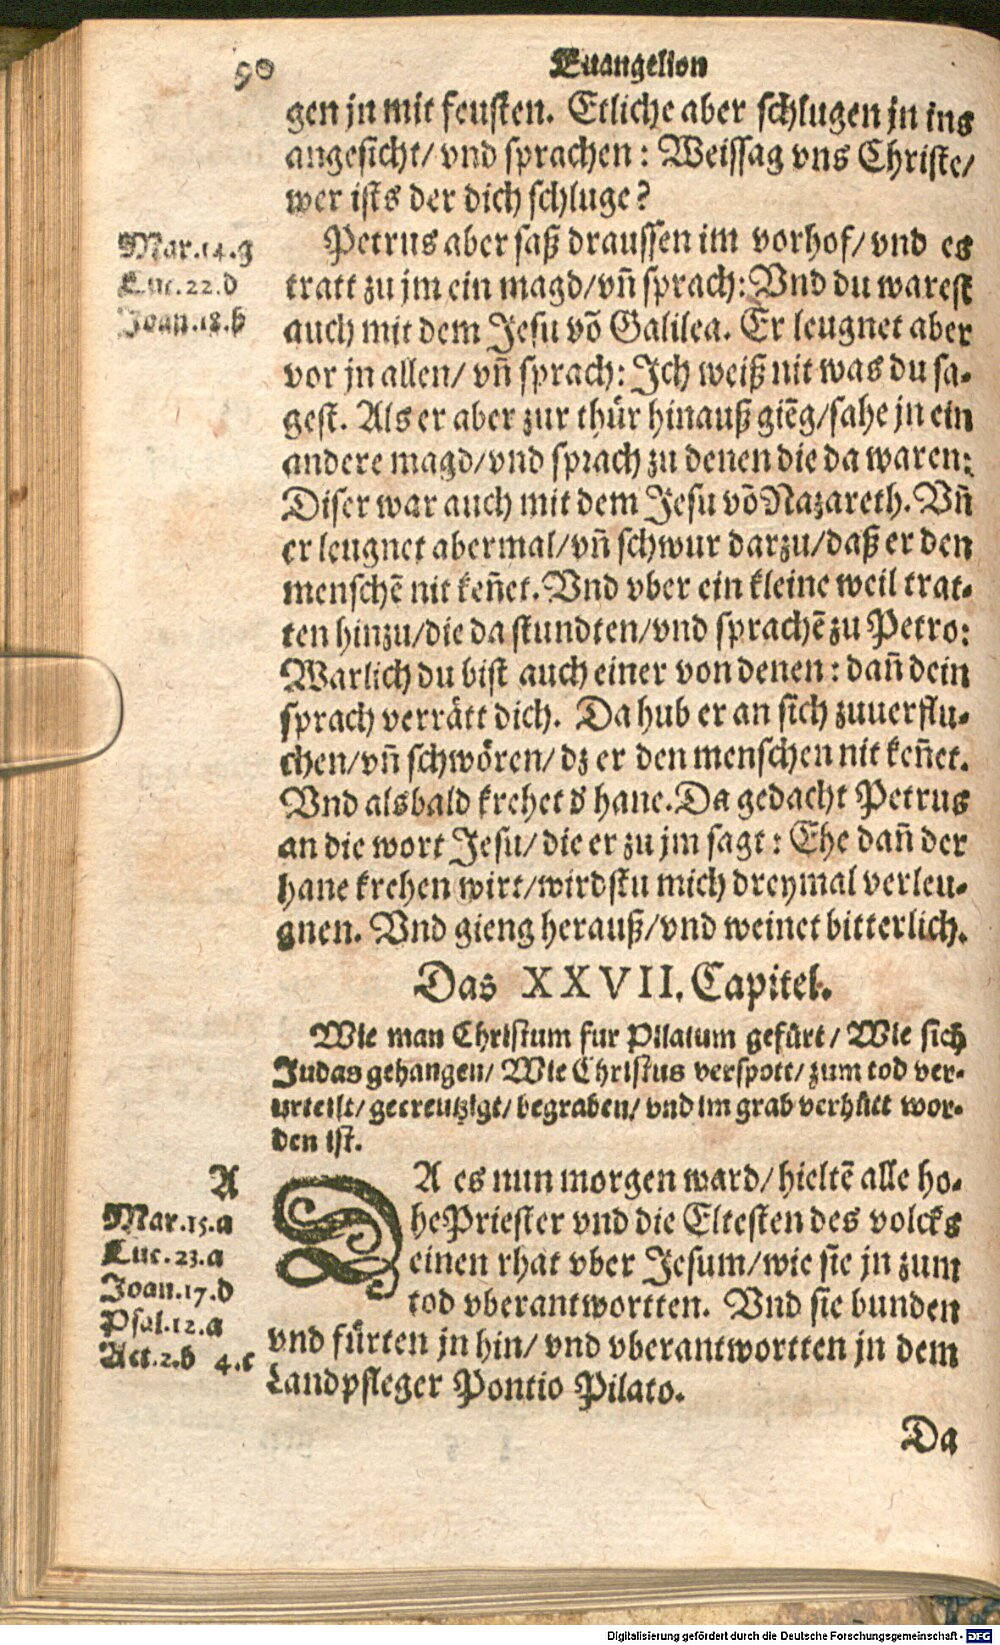 90
Euangelion
gen jn mit feusten. Etliche aber schlugen jn ins
angesicht/ vnd sprachen: Weissag vns Christe/
wer ists der dich schluge?
Mar.14.g
Luc.22.d
Joan.18.b
Petrus aber saß draussen im vorhof/ vnd es
tratt zu jm ein magd/ vñ sprach: Vnd du warest
auch mit dem Jesu võ Galilea. Er leugnet aber
vor jn allen/ vñ sprach: Ich weiß nit was du sa-
gest. Als er aber zur thür hinauß giẽg/ sahe jn ein
andere magd/ vnd sprach zu denen die da waren:
Diser war auch mit dem Jesu võ Nazareth. Vñ
er leugnet abermal/ vñ schwur darzu/ daß er den
menschẽ nit keñet. Vnd vber ein kleine weil trat-
ten hinzu/ die da stundten/ vnd sprachẽ zu Petro:
Warlich du bist auch einer von denen: dañ dein
sprach verrätt dich. Da hub er an sich zuuerflu-
chen/ vñ schwören/ dz er den menschen nit keñet.
Vnd alsbald krehet d̕ hane. Da gedacht Petrus
an die wort Jesu/ die er zu jm sagt: Ehe dañ der
hane krehen wirt/ wirdstu mich dreymal verleu-
gnen. Vnd gieng herauß/ vnd weinet bitterlich.
Das XXVII. Capitel.
Wie man Christum fur Pilatum gefürt/ Wie sich
Judas gehangen/ Wie Christus verspott/ zum tod ver-
urteilt/ gecreutzigt/ begraben/ vnd im grab verhütt wor-
den ist.
A
Mar.15.a
Luc.23.a
Joan.17.d
Psal.12.a
Act.2.b 4.c
DA es nun morgen ward/ hieltẽ alle ho-
hePriester vnd die Eltesten des volcks
einen rhat vber Jesum/ wie sie jn zum
tod vberantwortten. Vnd sie bunden
vnd fürten jn hin/ vnd vberantwortten jn dem
Landpfleger Pontio Pilato.
Da
Digitalisierung gefördert durch die Deutsche Forschungsgemeinschaft - DFG